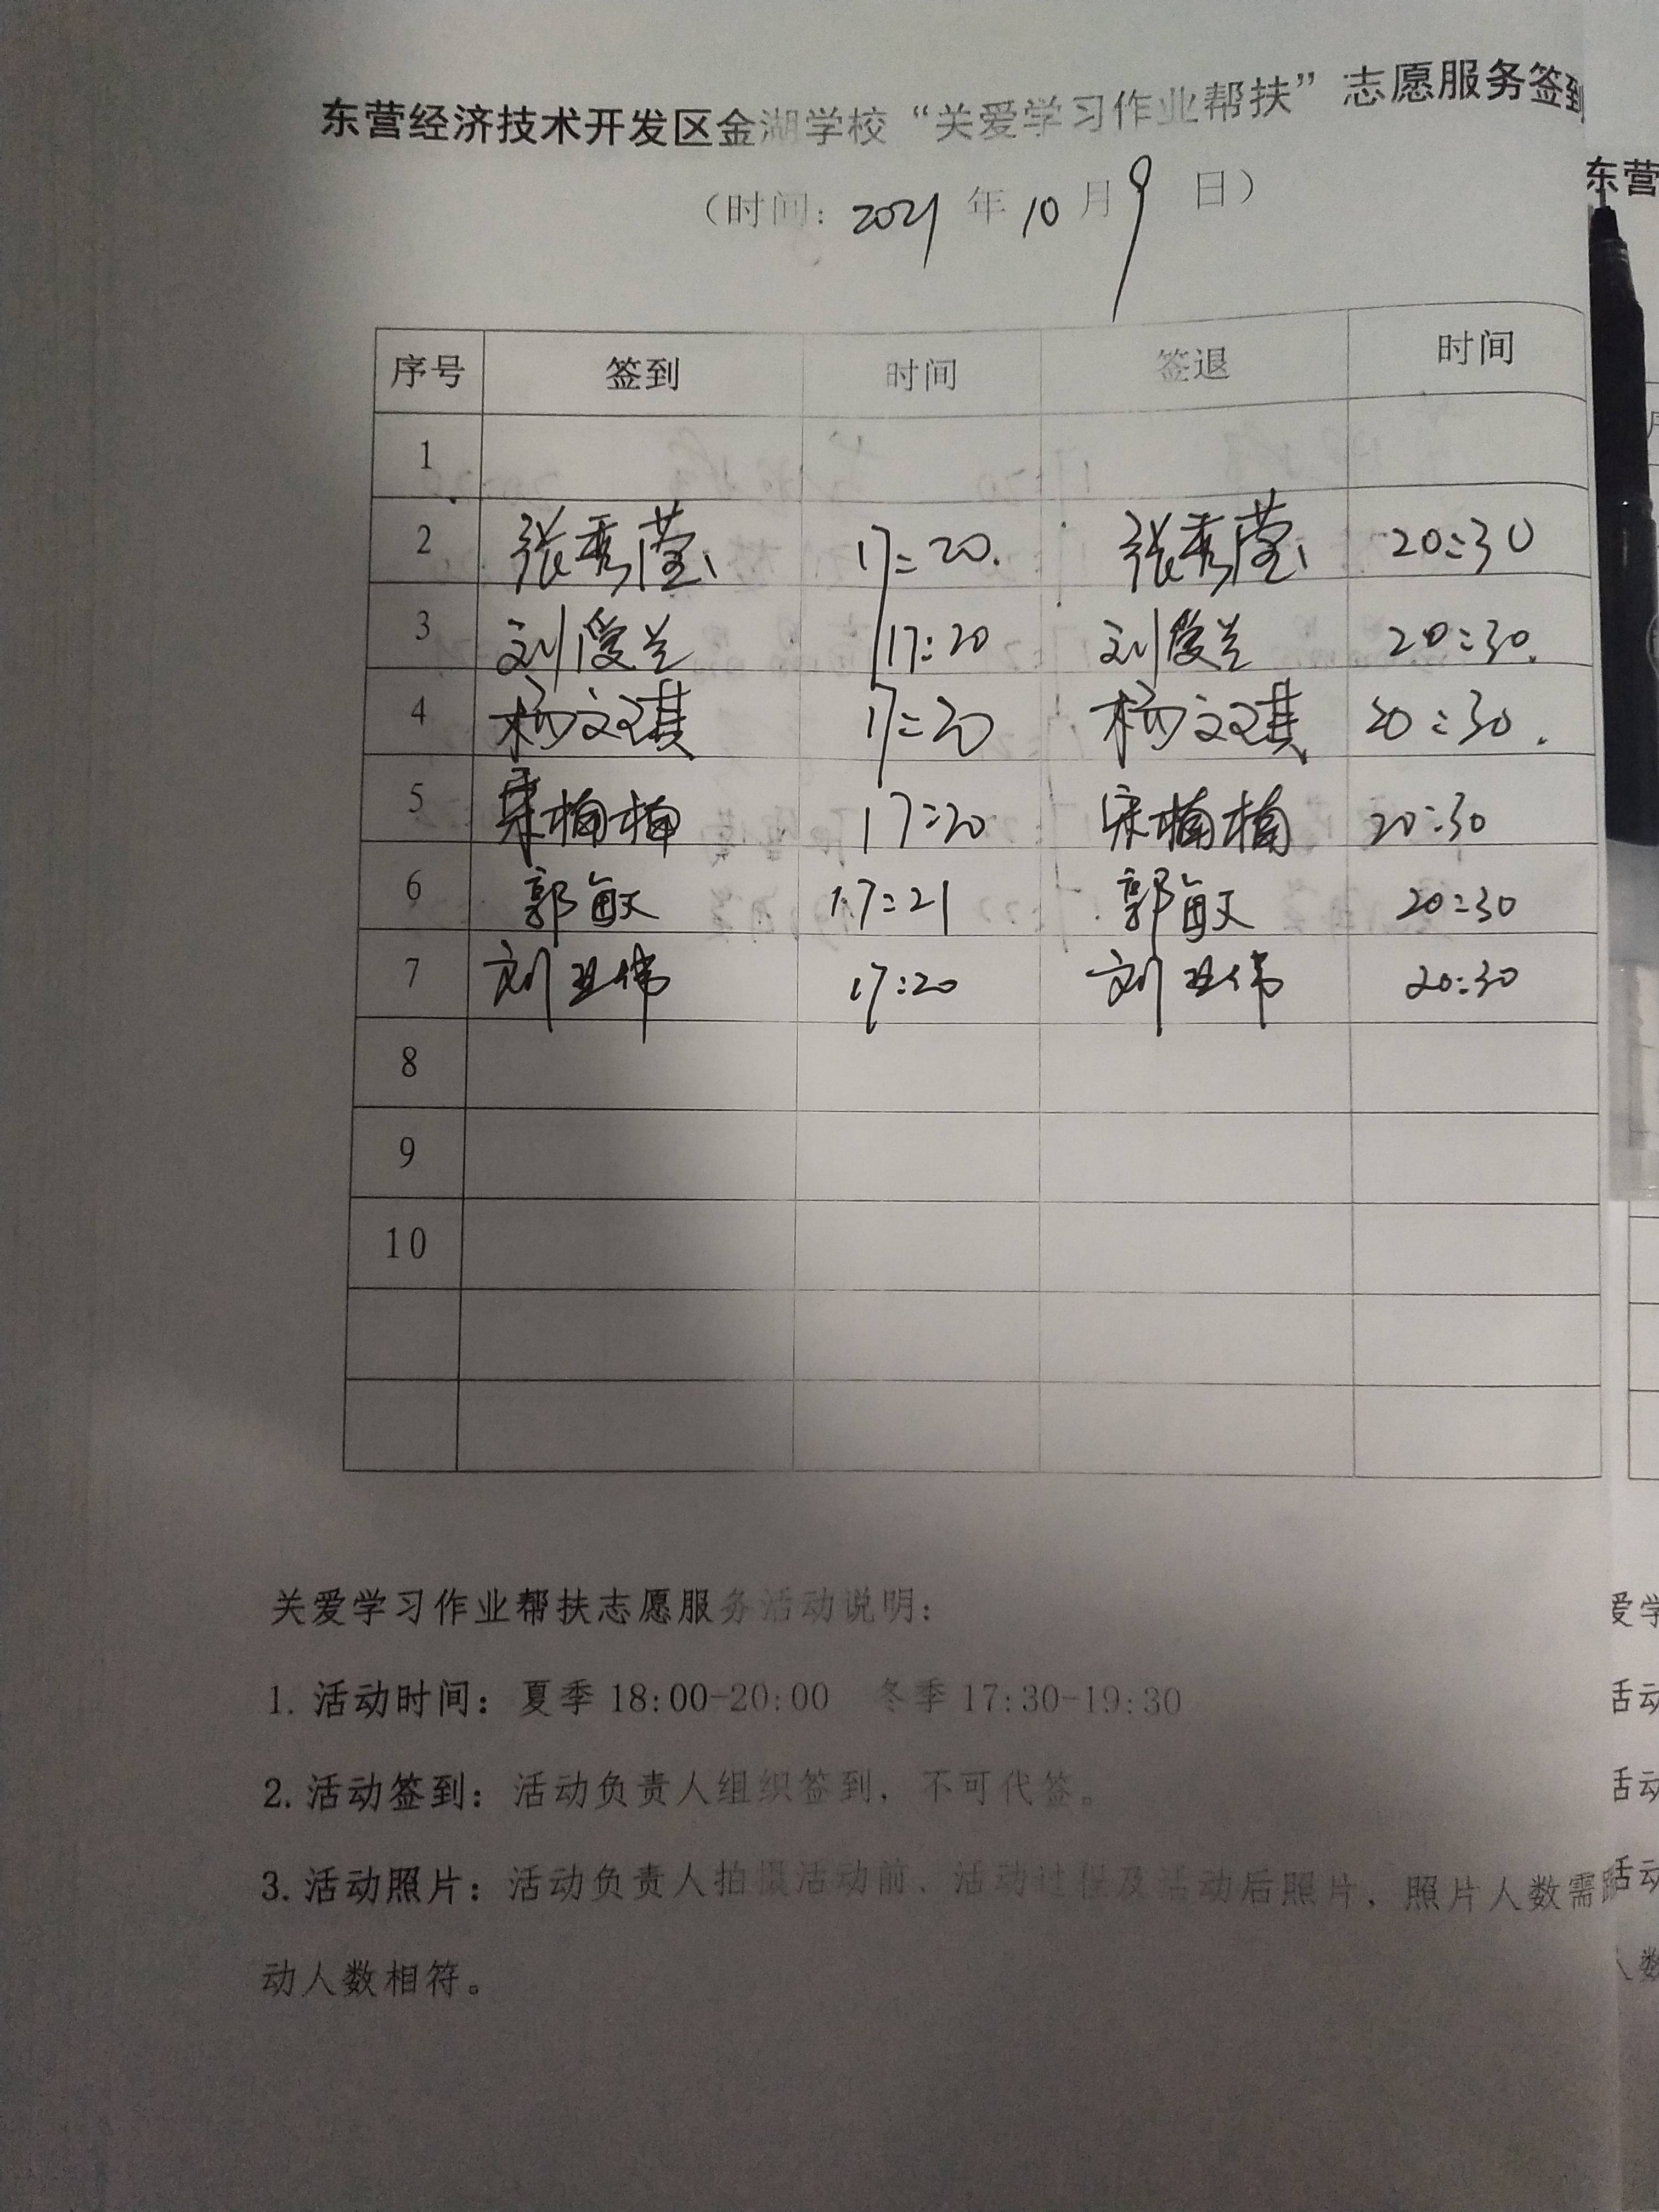 东营经济技术开发区金湖学校“关爱学习作业帮扶”志愿服务签到
(时间: 2021 年 10 月 9 日)
序号 签到 时间 签退 时间
1
2 张秀莹 17:20. 张秀莹 20:30
3 刘爱兰 17:20 刘爱兰 20:30.
4 杨文琪 17:20 杨文琪 20:30.
5 宋楠楠 17:20 宋楠楠 20:30
6 郭敏 17:21 郭敏 20:30
7 刘亚伟 17:20 刘亚伟 20:30
8
9
10
关爱学习作业帮扶志愿服务活动说明:
1. 活动时间: 夏季 18:00-20:00 冬季 17:30-19:30
2. 活动签到: 活动负责人组织签到, 不可代签。
3. 活动照片: 活动负责人拍摄活动前、活动过程及活动后照片, 照片人数需
动人数相符。
东营
爱学
活动
活动
活动
人数